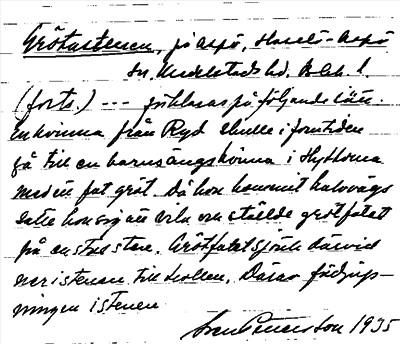 Grötastenen, på Aspö, Hasslö-Aspö
sn. Medelstads hd, Blek. l.
(forts.) --- förklaras på följande sätt.
En kvinna från Ryd skulle i forntiden
gå till en barnsängskvinna i Hyttorna
med ett fat gröt. Då hon kommit halvvägs
satte hon sig att vila och ställde grötfatet
på en stor sten. Grötfatet sjönk därvid
ner i stenen till trollen. Därav fördjup-
ningen i stenen
Sven Peterson 1935